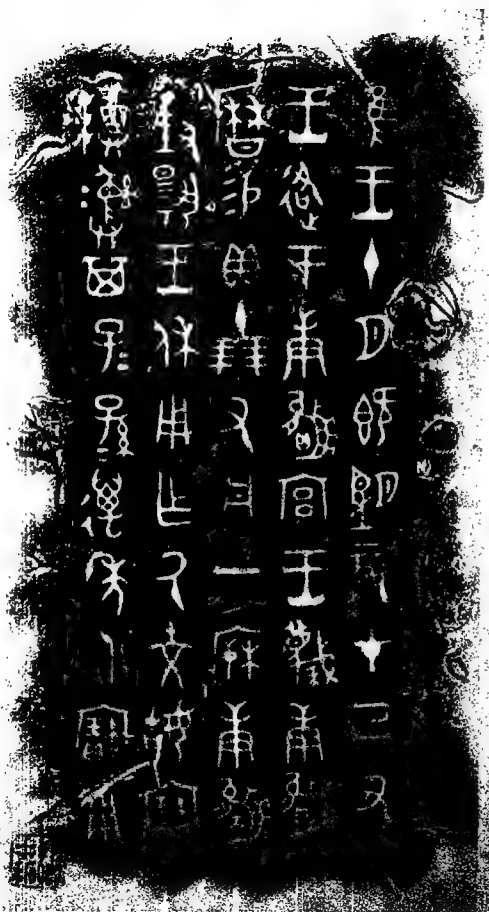 隹王十月既望辰才己丑
王各于庚嬴宮王蔑庚嬴
曆易貝十朋又丹一㭉庚嬴
對揚王休用乍氒文姑寶
尊彝其子子孫孫萬年永寶用